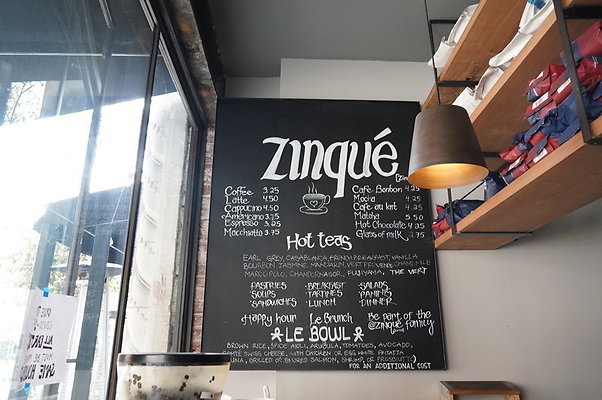 Zinqué
Coffee 3.25
Latte 4.50
Cappucino 4.50
Americano 3.75
Espresso 3.25
Macchiatto 3.75
Cafe Bonbon 4.25
Mocha 4.25
Cafe au lait 4.25
Matcha 5.50
Hot Chocolate 4.25
Glass of milk 3.75
Hot teas
EARL GREY, CASABLANCA, FRENCH BREAKFAST, VANILLA
BOURBON, JASMINE, MANDARIN, VERT PROVENCE, CHAMOMILE
MARCO POLO, CHANDERNAGOR, FUJIYAMA, THE VERT
·PASTRIES ·BREAKFAST ·SALADS
·SOUPS ·TARTINES ·PANINIS
·SANDWICHES ·LUNCH ·DINNER
Happy hour Le Brunch Be part of the
@zinque family
LE BOWL
BROWN RICE, SPICE AIOLI, ARUGULA, TOMATOES, AVOCADO,
WHITE SWISS CHEESE, WITH CHICKEN OR EGG WHITE FRITATTA
TUNA, GRILLED OR SMOKED SALMON, SHRIMP, OR PROSCIUTTO
FOR AN ADDITIONAL COST